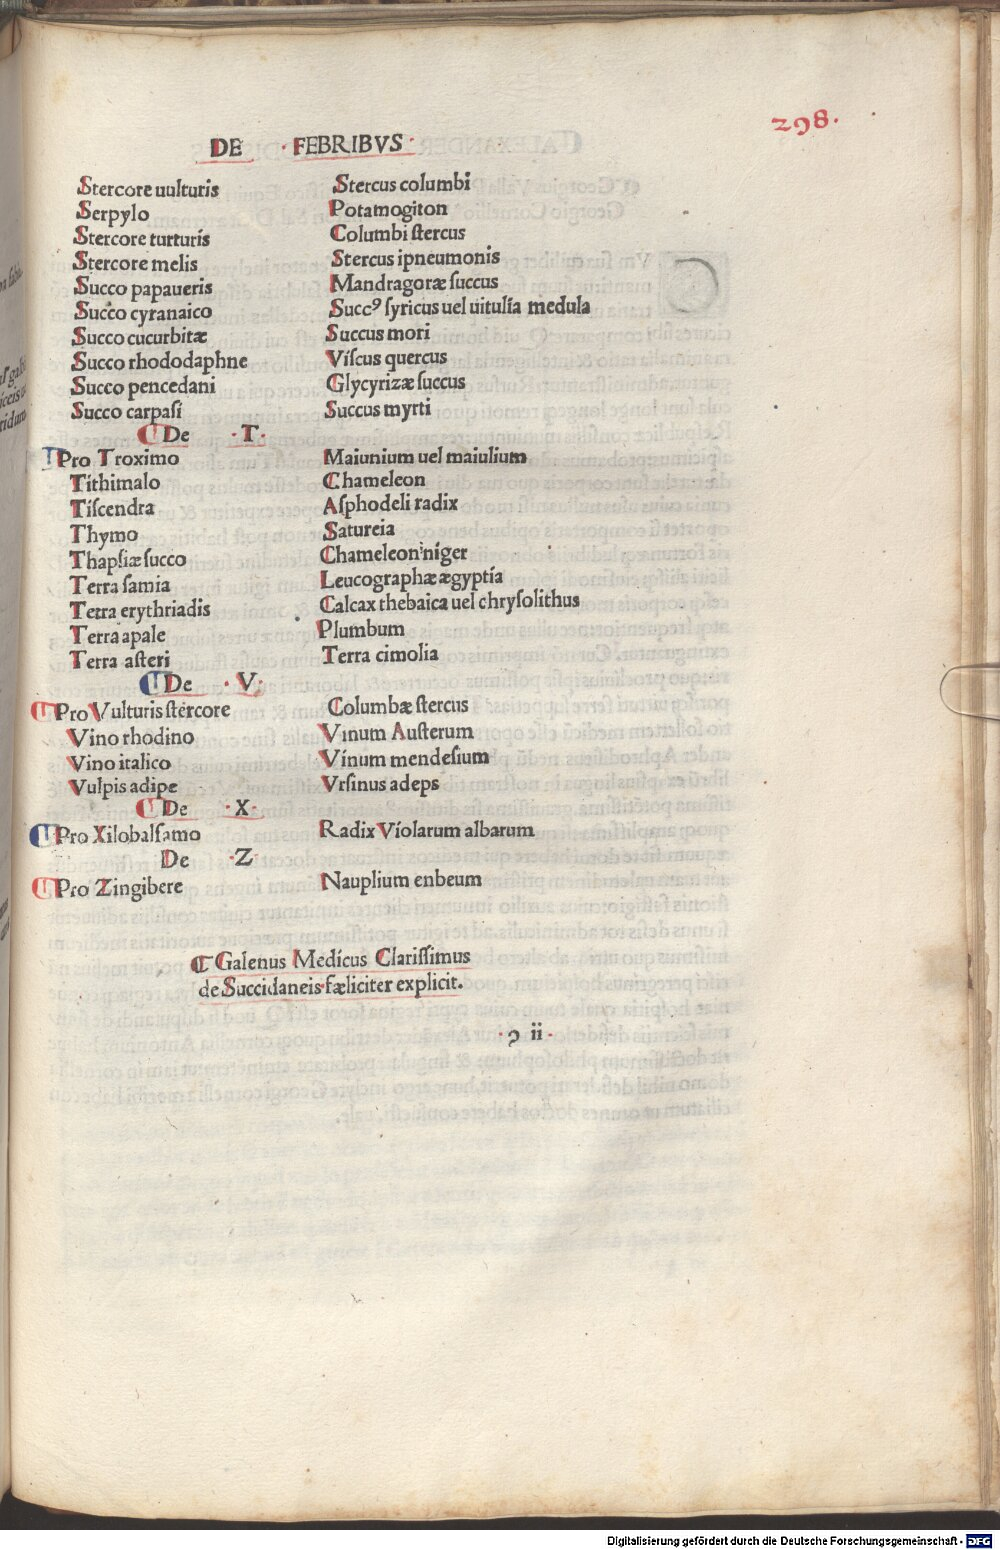 298.
DE · FEBRIBVS ·
Stercore uulturis Stercus columbi
Serpylo Potamogiton
Stercore turturis Columbi stercus
Stercore melis Stercus ipneumonis
Succo papaueris Mandragoræ succus
Succo cyranaico Succꝰ syricus uel uitulia medula
Succo cucurbitæ Succus mori
Succo rhododaphne Viscus quercus
Succo pencedani Glycyrizæ succus
Succo carpasi Succus myrti
¶ De · T ·
¶ Pro Troximo Maiunium uel maiulium
Tithimalo Chameleon
Tiscendra Asphodeli radix
Thymo Satureia
Thapsiæ succo Chameleon niger
Terra samia Leucographææ ægyptia
Terra erythriadis Calcax thebaica uel chrysolithus
Terra apale Plumbum
Terra asteri Terra cimolia
¶ De · V ·
¶ Pro Vulturis stercore Columbæ stercus
Vino rhodino Vinum Austerum
Vino italico Vinum mendesium
Vulpis adipe Vrsinus adeps
¶ De · X ·
¶ Pro Xilobalsamo Radix Violarum albarum
De · Z
¶ Pro Zingibere Nauplium enbeum
¶ Galenus Medicus Clarissimus
de Succidaneis fæliciter explicit.
· 9 ii ·
Digitalisierung gefördert durch die Deutsche Forschungsgemeinschaft - DFG